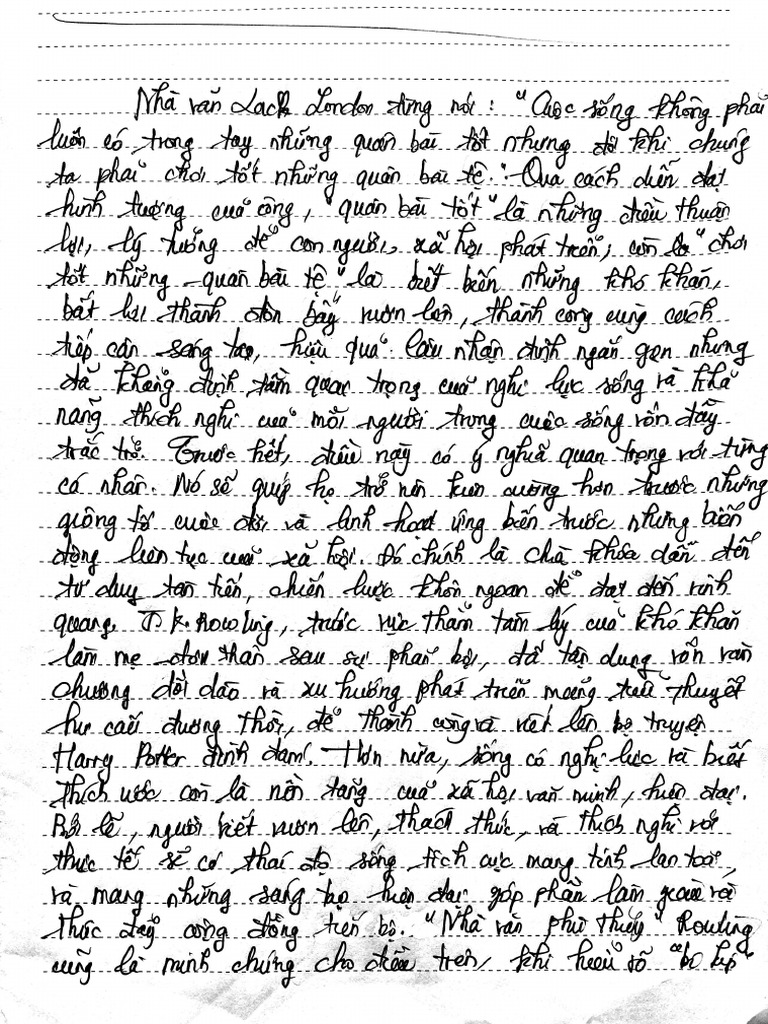 Nhà văn Lack London từng nói : "Cuộc sống không phải
luôn có trong tay những quân bài tốt nhưng đôi khi chúng
ta phải chơi tốt những quân bài tệ." Qua cách diễn đạt
hình tượng của ông, "quân bài tốt" là những điều thuận
lợi, lý tưởng để con người, xã hội phát triển; còn là "chơi
tốt những quân bài tệ" là biết biến những khó khăn,
bất lợi thành đòn bẩy vươn lên, thành công cùng cách
tiếp cận sáng tạo, hiệu quả. Câu nhận định ngắn gọn nhưng
đã khẳng định tầm quan trọng của nghị lực sống và khả
năng thích nghi của mỗi người trong cuộc sống vốn đầy
trắc trở. Trước hết, điều này có ý nghĩa quan trọng với từng
cá nhân. Nó sẽ giúp họ trở nên kiên cường hơn trước những
giông tố cuộc đời và linh hoạt ứng biến trước những biến
động liên tục của xã hội. Đó chính là chìa khóa dẫn đến
tư duy tân tiến, chiến lược khôn ngoan để đạt đến vinh
quang. J.K. Rowling, trước vực thẳm tâm lý của khó khăn
làm mẹ đơn thân sau sự phản bội, đã tận dụng vốn văn
chương dồi dào và xu hướng phát triển mảng tiểu thuyết
hư cấu đương thời, để thành công và viết lên bộ truyện
Harry Potter đình đám. Hơn nữa, sống có nghị lực và biết
thích ước còn là nền tảng của xã hội văn minh, hiện đại.
Bởi lẽ, người biết vươn lên, thách thức, và thích nghi với
thực tế sẽ có thái độ sống tích cực mang tính lan toả,
và mang những sáng tạo hiện đại góp phần làm giàu và
thúc đẩy cộng đồng tiến bộ. "Nhà văn phù thủy" Rowling
cũng là minh chứng cho điều trên, khi hiểu rõ